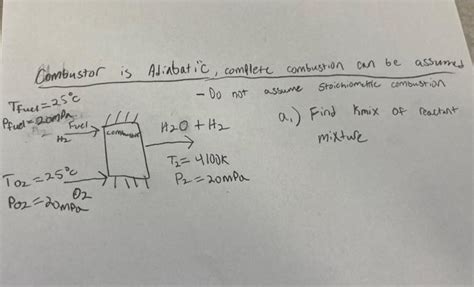 Combustor is Adiabatic, complete combustion can be assumed
- Do not assume stoichiometric combustion
TFuel=25°C
PFuel=20mPa
H2
Fuel
H2
combustor
H2O + H2
T2=4100K
P2=20mPa
TO2=25°C
PO2=20mPa
O2
a.) Find Kmix of reactant
mixture